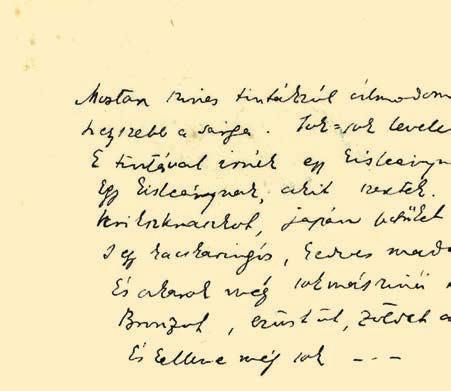 Mostan szines tintákról álmodom
Legszebb a sárga. Sok=sok levele
E tintával irnék egy kisleányn
Egy kisleánynak, akit szeretek.
Krikszkrakszot, japán betűket
S egy kacskaringós, kedves mada
És akarok még sokmásszinű
Bronzot, ezüstöt, zöldet a
És kellene még sok - - -